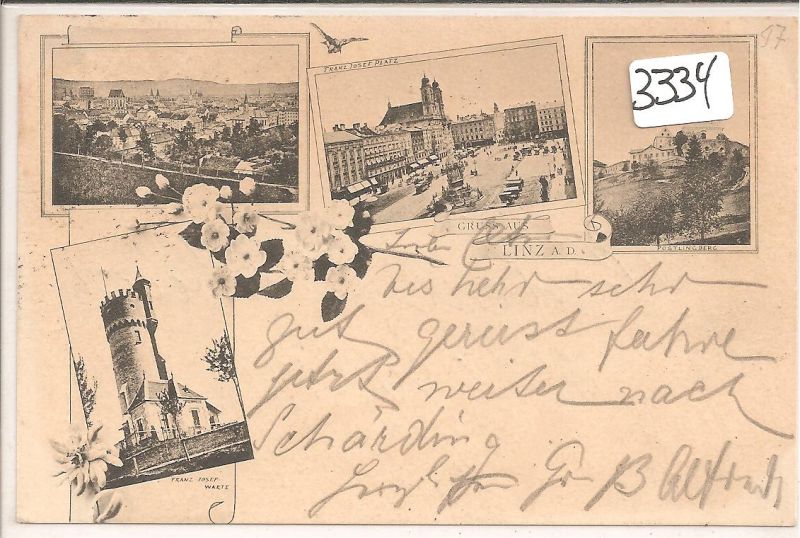 17
3334
FRANZ JOSEF PLATZ
GRUSS AUS
LINZ A.D.
PÖSTLINGBERG
FRANZ JOSEF
WARTE
Liebe
bis hehr sehr
gut gereist fahre
jetzt weiter nach
Schärding
Alfred